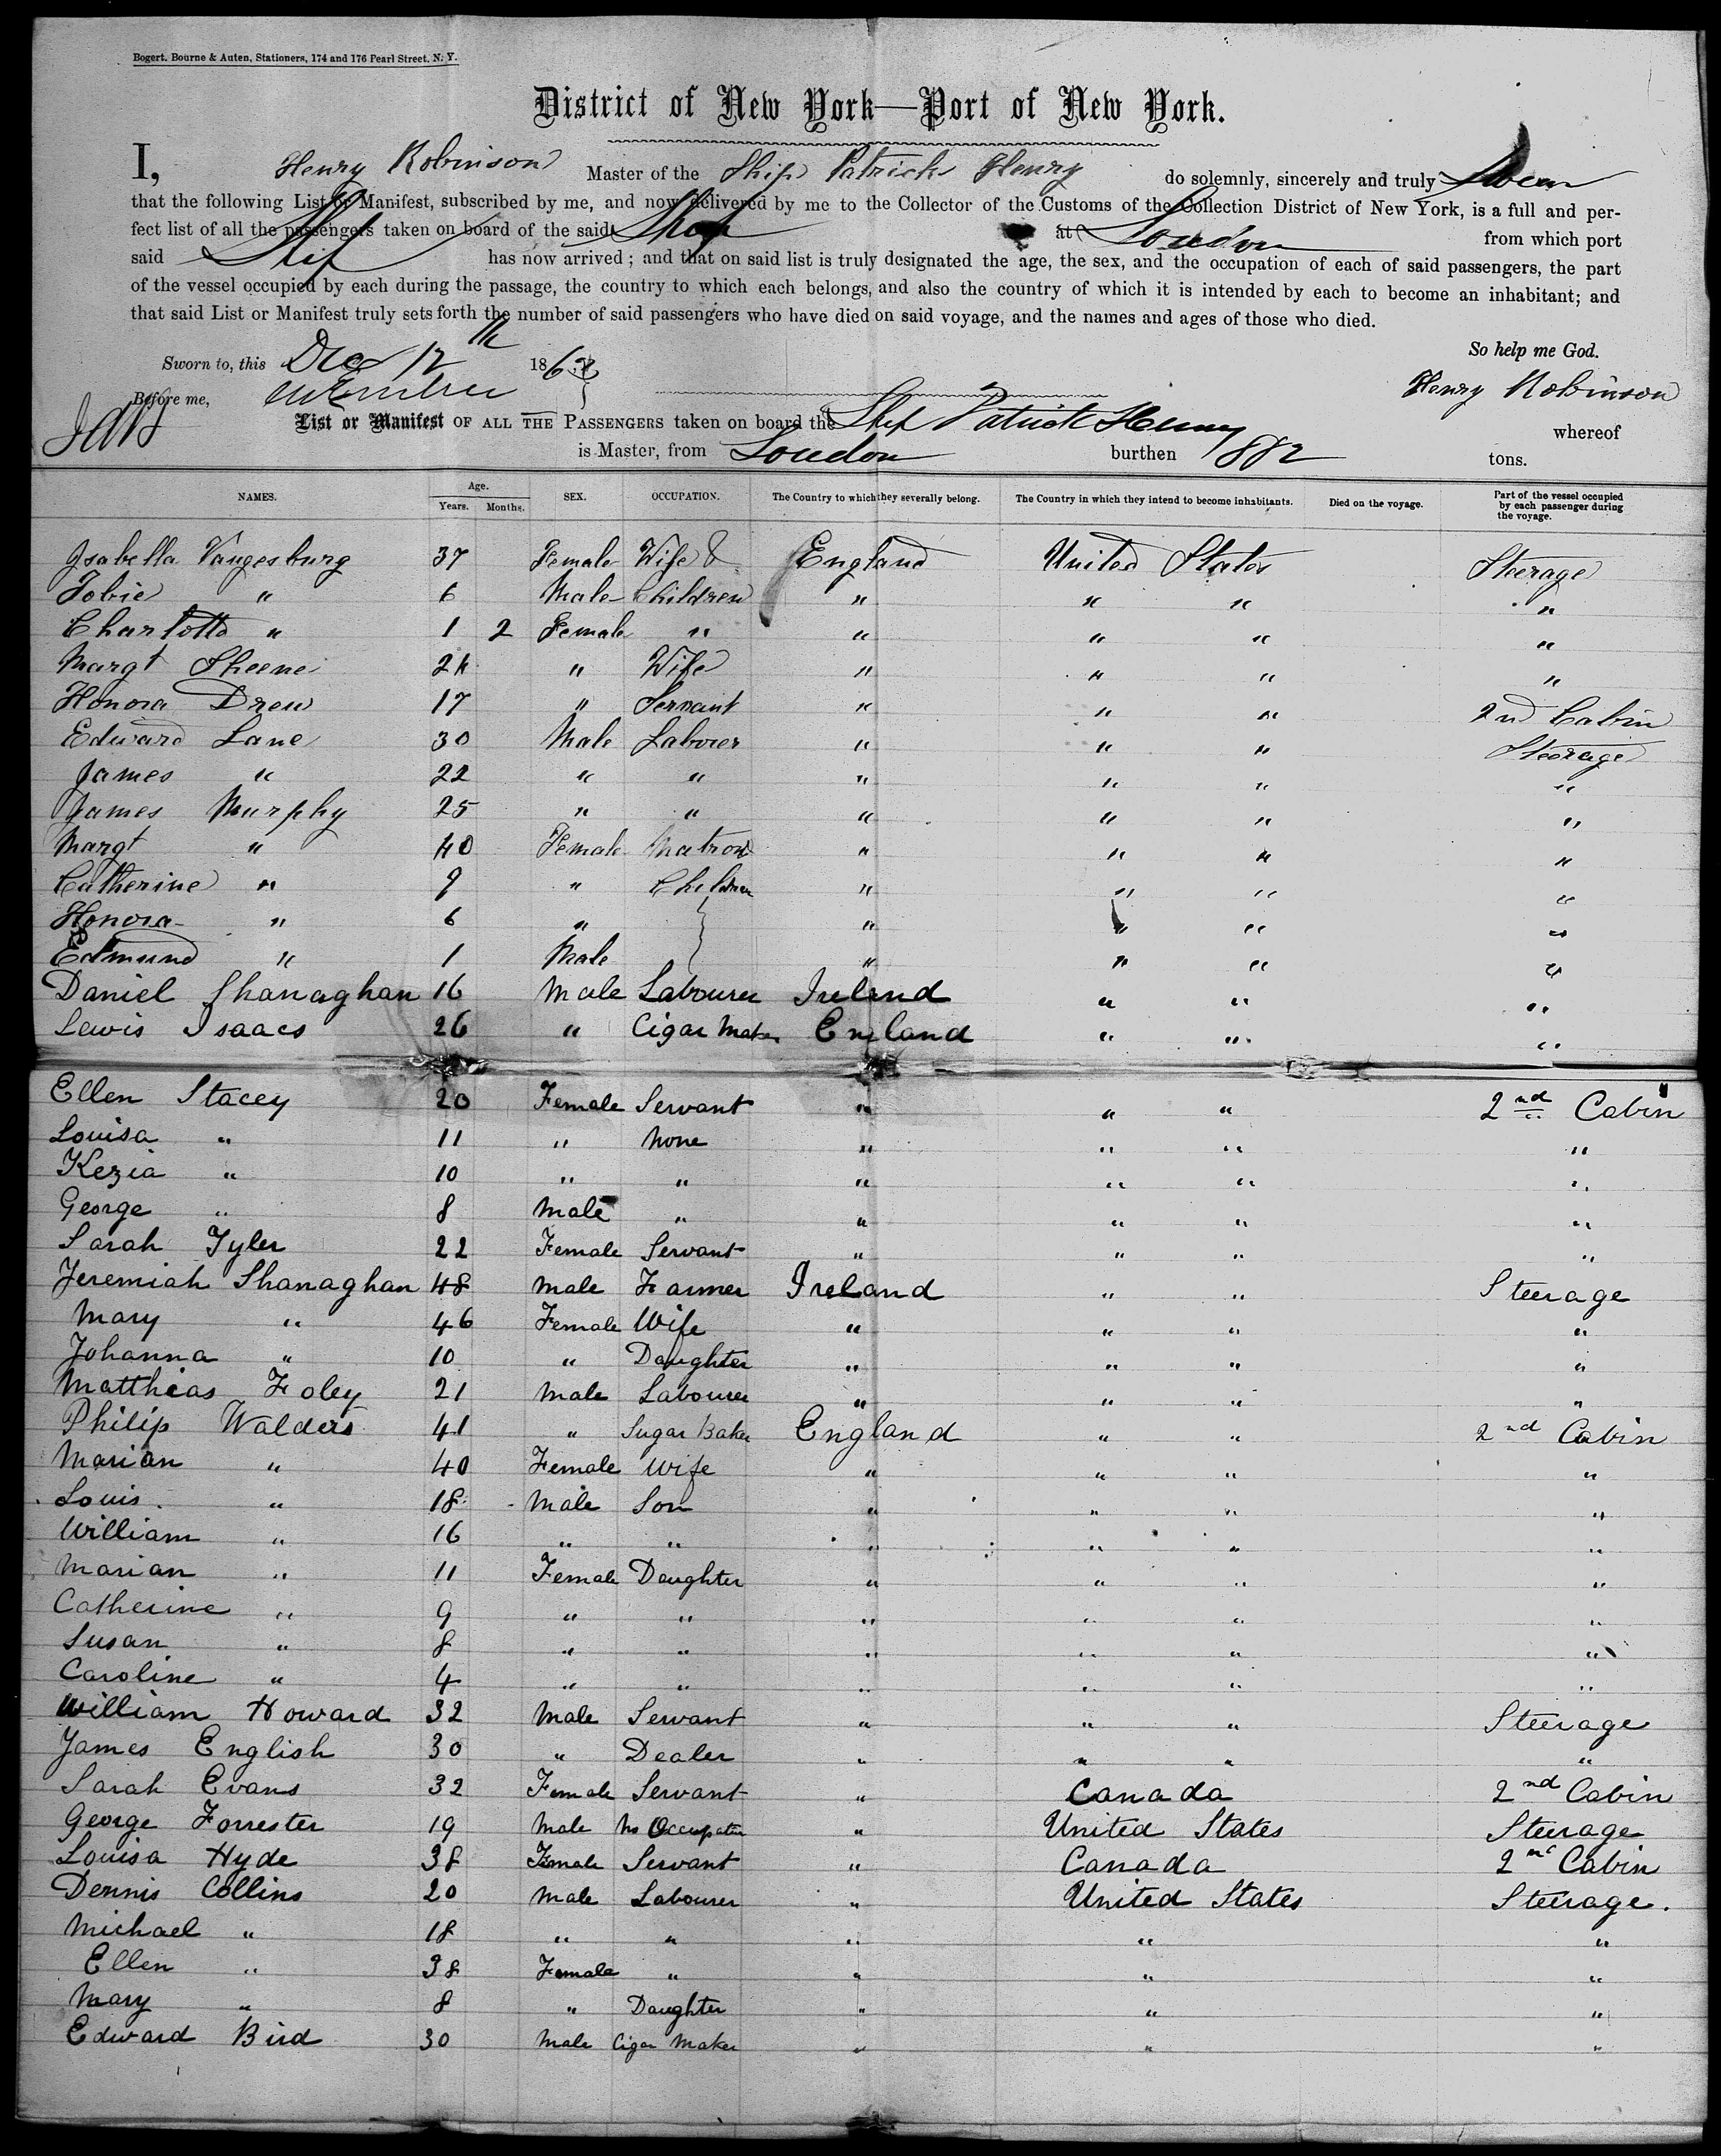 Bogert, Bourne & Auten, Stationers, 174 and 176 Pearl Street, N. Y.
District of New York—Port of New York.
I, Henry Robinson Master of the Ship Patrick Henry do solemnly, sincerely and truly Swear
that the following List or Manifest, subscribed by me, and now delivered by me to the Collector of the Customs of the Collection District of New York, is a full and per-
fect list of all the passengers taken on board of the said Ship at London from which port
said Ship has now arrived; and that on said list is truly designated the age, the sex, and the occupation of each of said passengers, the part
of the vessel occupied by each during the passage, the country to which each belongs, and also the country of which it is intended by each to become an inhabitant; and
that said List or Manifest truly sets forth the number of said passengers who have died on said voyage, and the names and ages of those who died.
So help me God.
Sworn to, this Dec 12th 186
Henry Robinson
Before me,
List or Manifest OF ALL THE PASSENGERS taken on board the Ship Patrick Henry whereof
is Master, from London burthen 882 tons.
NAMES. Age. Years. Months. SEX. OCCUPATION. The Country to which they severally belong. The Country in which they intend to become inhabitants. Died on the voyage. Part of the vessel occupied by each passenger during the voyage.
Isabella Vangesburg 37 Female Wife & England United States Steerage
Tobie " 6 Male Children " " " "
Charlotte " 1 2 Female " " " " "
Margt Sheene 24 " Wife " " " "
Honora Drew 17 " Servant " " " 2nd Cabin
Edward Lane 30 Male Laborer " " " Steerage
James " 22 " " " " " "
James Murphy 25 " " " " " "
Margt " 40 Female Matron " " " "
Catherine " 9 " Children " " " "
Honora " 6 " " " " "
Edmund " 1 Male " " " "
Daniel Shanaghan 16 Male Labourer Ireland " " "
Lewis Isaacs 26 " Cigar Maker England " " "
Ellen Stacey 20 Female Servant " " " 2nd Cabin
Louisa " 11 " None " " " "
Kezia " 10 " " " " " "
George " 8 Male " " " " "
Sarah Tyler 22 Female Servant " " " "
Jeremiah Shanaghan 48 Male Farmer Ireland " " Steerage
Mary " 46 Female Wife " " " "
Johanna " 10 " Daughter " " " "
Matthias Foley 21 Male Labourer " " " "
Philip Walders 41 " Sugar Baker England " " 2nd Cabin
Marian " 40 Female Wife " " " "
Louis " 18 Male Son " " " "
William " 16 " " " " " "
Marian " 11 Female Daughter " " " "
Catherine " 9 " " " " " "
Susan " 8 " " " " " "
Caroline " 4 " " " " " "
William Howard 32 Male Servant " " " Steerage
James English 30 " Dealer " " " "
Sarah Evans 32 Female Servant " Canada 2nd Cabin
George Forrester 19 Male No Occupation " United States Steerage
Louisa Hyde 38 Female Servant " Canada 2nd Cabin
Dennis Collins 20 Male Labourer " United States Steerage.
Michael " 18 " " " " "
Ellen " 38 Female " " " "
Mary " 8 " Daughter " " "
Edward Bird 30 Male Cigar Maker " " "